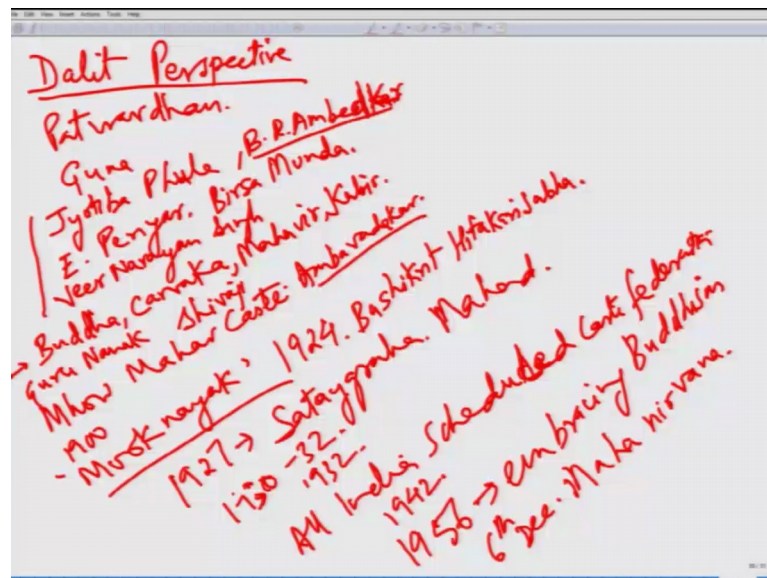 Dalit Perspective
Patwardhan.
Guna
Jyotiba Phule, B.R.Ambedkar
E. Periyar. Birsa Munda.
Veer Narayan Singh
Buddha, Carvaka, Mahavir, Kabir.
Guru Nanak Shivaji
Mhow Mahar Caste Ambavadekar.
1900
- Mooknayak' 1924. Bashikint Hitakrini Sabha.
1927 → Sataygraha. Mahad.
1930-32.
1932.
All India Scheduled Caste federation
1942.
1956 → embracing Buddhism
6th Dec. Maha nirvana.